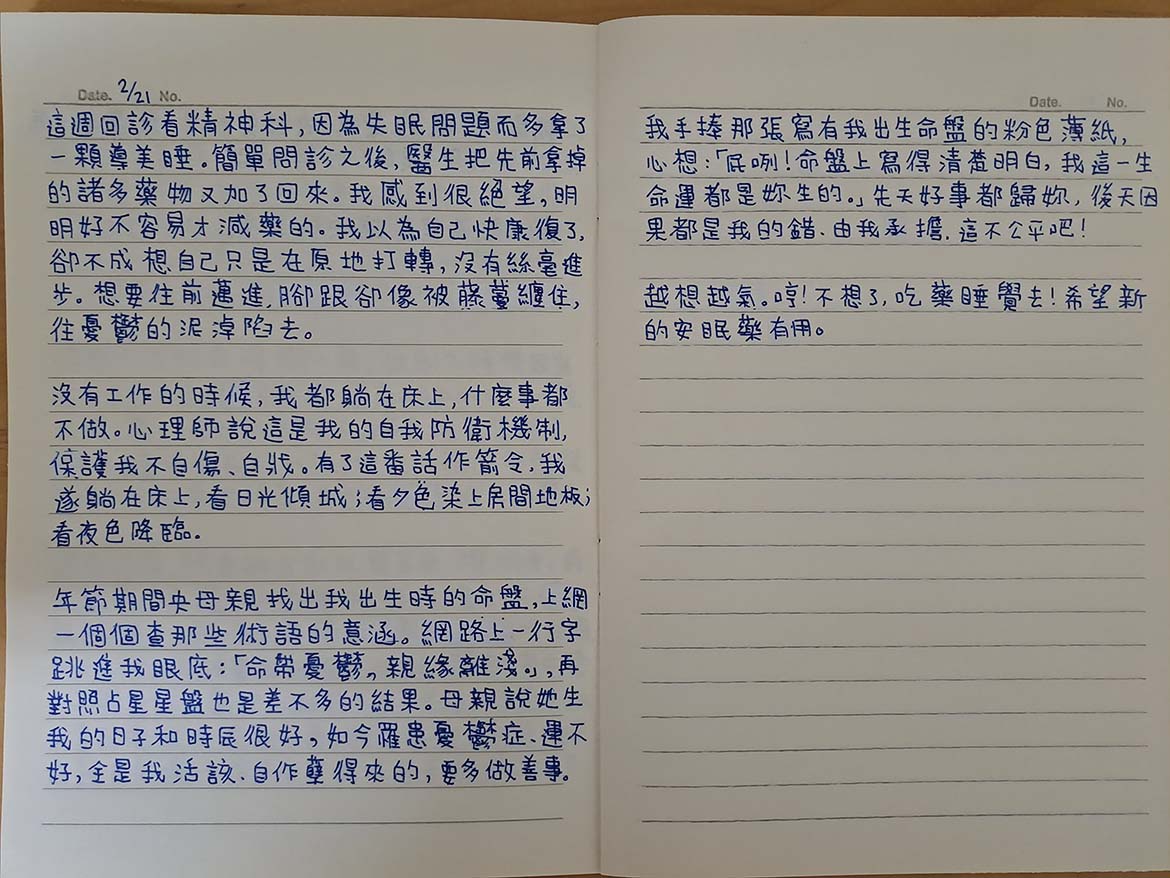 Date. 2/21 No.
這週回診看精神科，因為失眠問題而多拿了
一顆導美睡。簡單問診之後，醫生把先前拿掉
的諸多藥物又加了回來。我感到很絕望，明
明好不容易才減藥的。我以為自己快康復了，
卻不成想自己只是在原地打轉，沒有絲毫進
步。想要往前邁進，腳跟卻像被藤蔓纏住，
往憂鬱的泥淖陷去。
沒有工作的時候，我都躺在床上，什麼事都
不做。心理師說這是我的自我防衛機制，
保護我不自傷、自戕。有了這番話作箭令，我
遂躺在床上，看日光傾城；看夕色染上房間地板；
看夜色降臨。
年節期間央母親找出我出生時的命盤，上網
一個個查那些術語的意涵。網路上一行字
跳進我眼底：「命帶憂鬱，親緣離淺。」，再
對照占星星盤也是差不多的結果。母親說她生
我的日子和時辰很好，如今罹患憂鬱症、運不
好，全是我活該、自作孽得來的，要多做善事。
Date. No.
我手捧那張寫有我出生命盤的粉色薄紙，
心想：「屁咧！命盤上寫得清楚明白，我這一生
命運都是妳生的。」先天好事都歸妳，後天因
果都是我的錯、由我承擔，這不公平吧！
越想越氣。哼！不想了，吃藥睡覺去！希望新
的安眠藥有用。